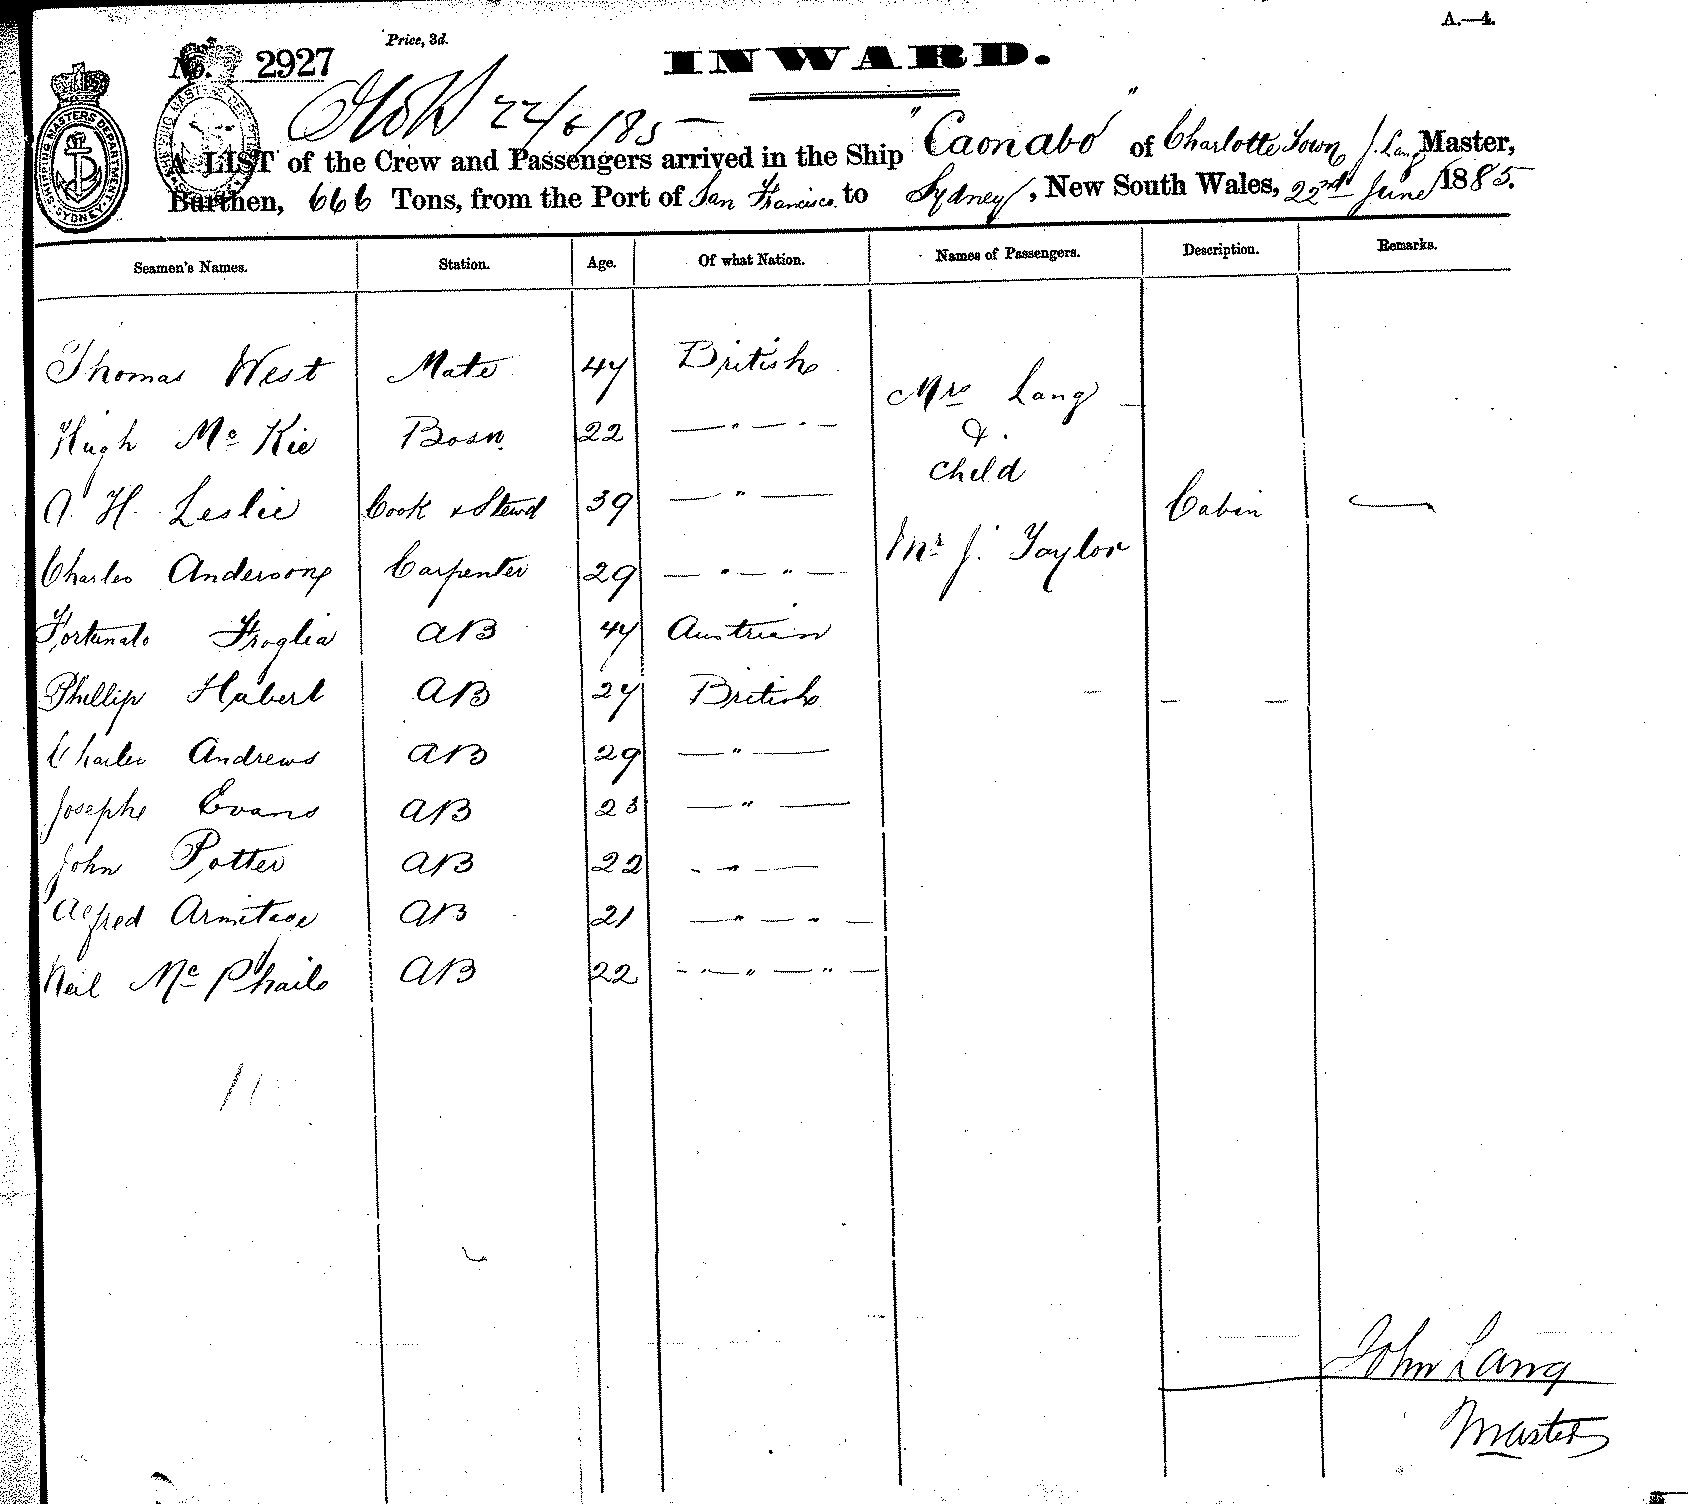 A.—4.
Price, 3d.
No. 2927
INWARD.
22/6/85
A LIST of the Crew and Passengers arrived in the Ship "Caonabo" of Charlotte Town J. Lang Master,
Burthen, 666 Tons, from the Port of San Francisco to Sydney, New South Wales, 22nd June 1885.
SHIPPING MASTERS DEPARTMENT SYDNEY
Seamen's Names. Station. Age. Of what Nation. Names of Passengers. Description. Remarks.
Thomas West Mate 47 British
Mrs Lang
Hugh McKie Bosn. 22 — " — " —
&
child
A. H. Leslie Cook & Stewd 39 — " — Cabin —
Mr J. Taylor
Charles Anderson Carpenter 29 — " — " —
Fortunato Froglia AB 47 Austrian
Phillip Hubert AB 27 British
Charles Andrews AB 29 — " —
Josephe Evans AB 23 — " —
John Potter AB 22 - " —
Alfred Armitage AB 21 — " — " —
Neil McPhail AB 22 - " — " — " —
11
John Lang
Master